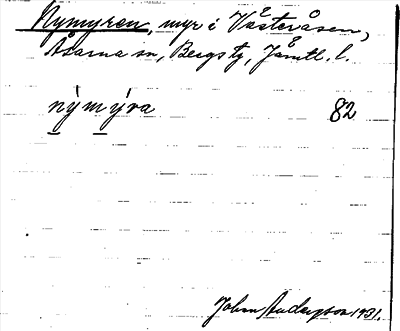 Nymyren, myr i Västeråsen,
Åsarna sn, Bergs tg, Jämtl. l.
nỳmýra 82
Johan Anderson 1931.